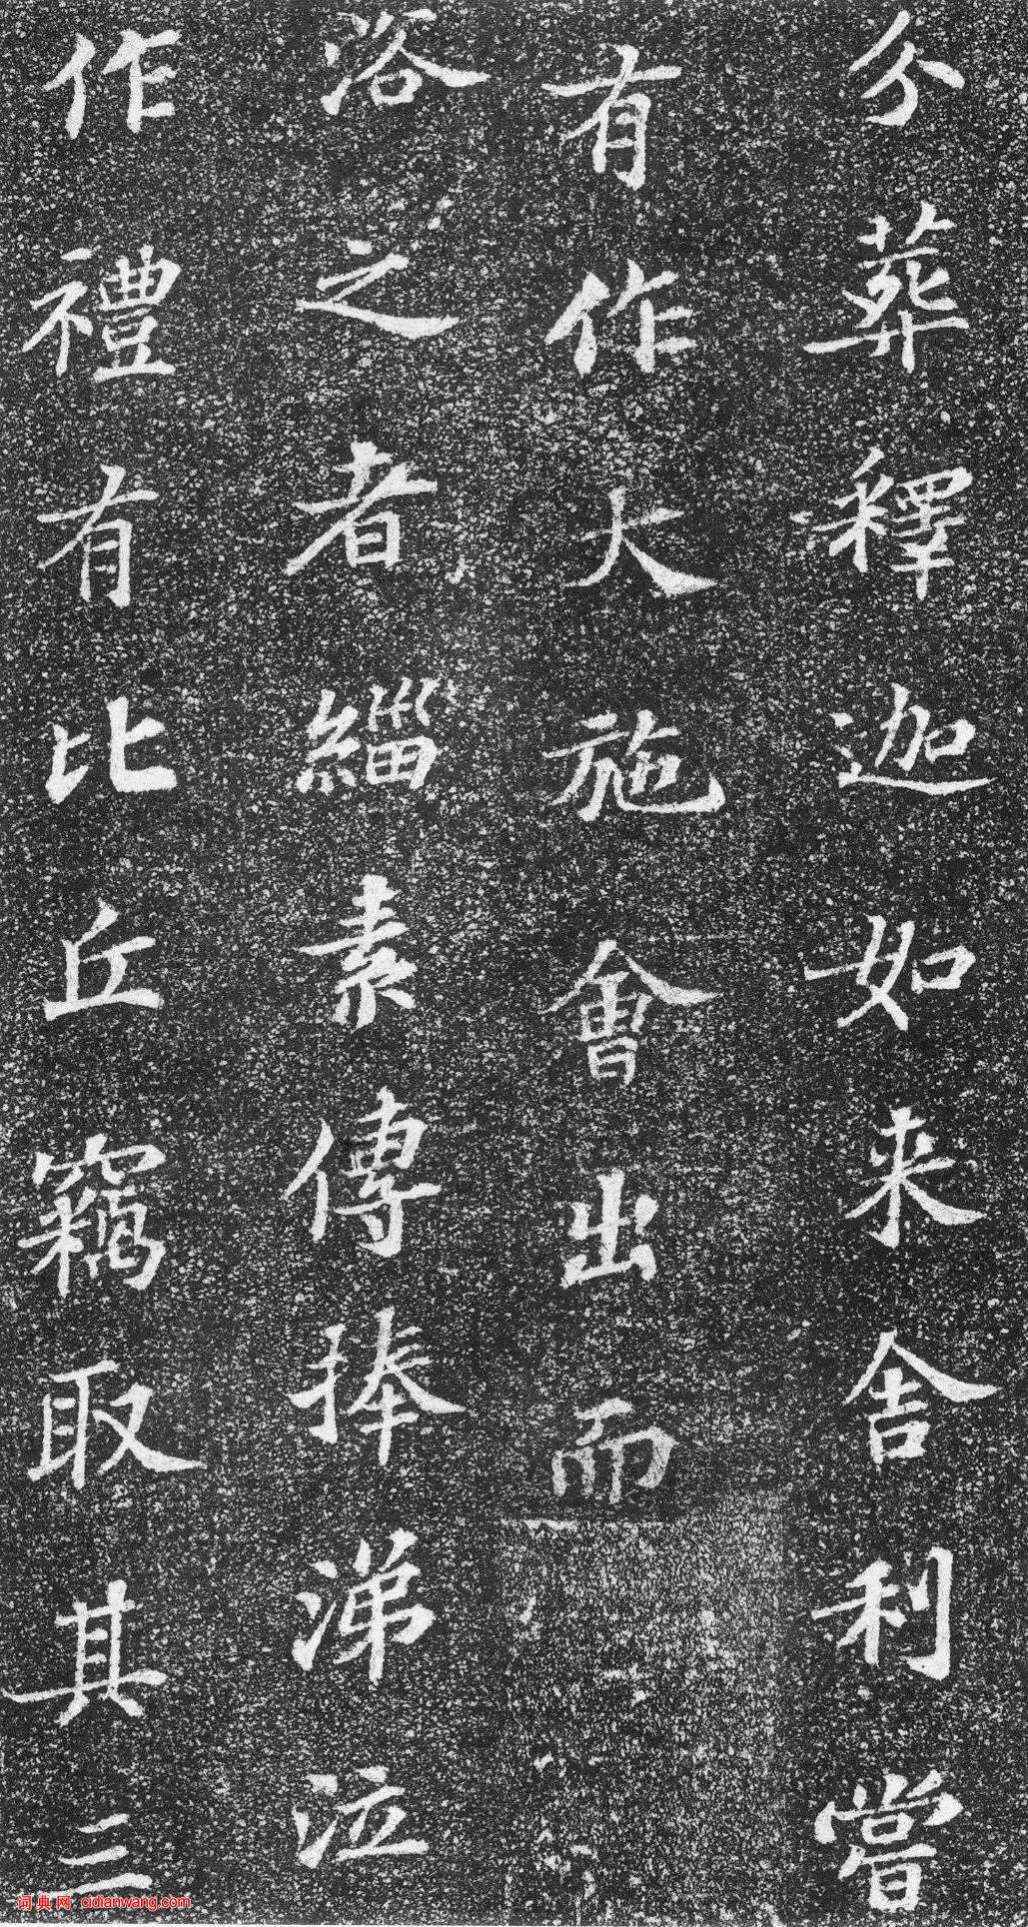 分葬釋迦如来舎利嘗
有作大施會出而
浴之者緇素傳捧涕泣
作禮有比丘竊取其三
词典网 cidianwang.com